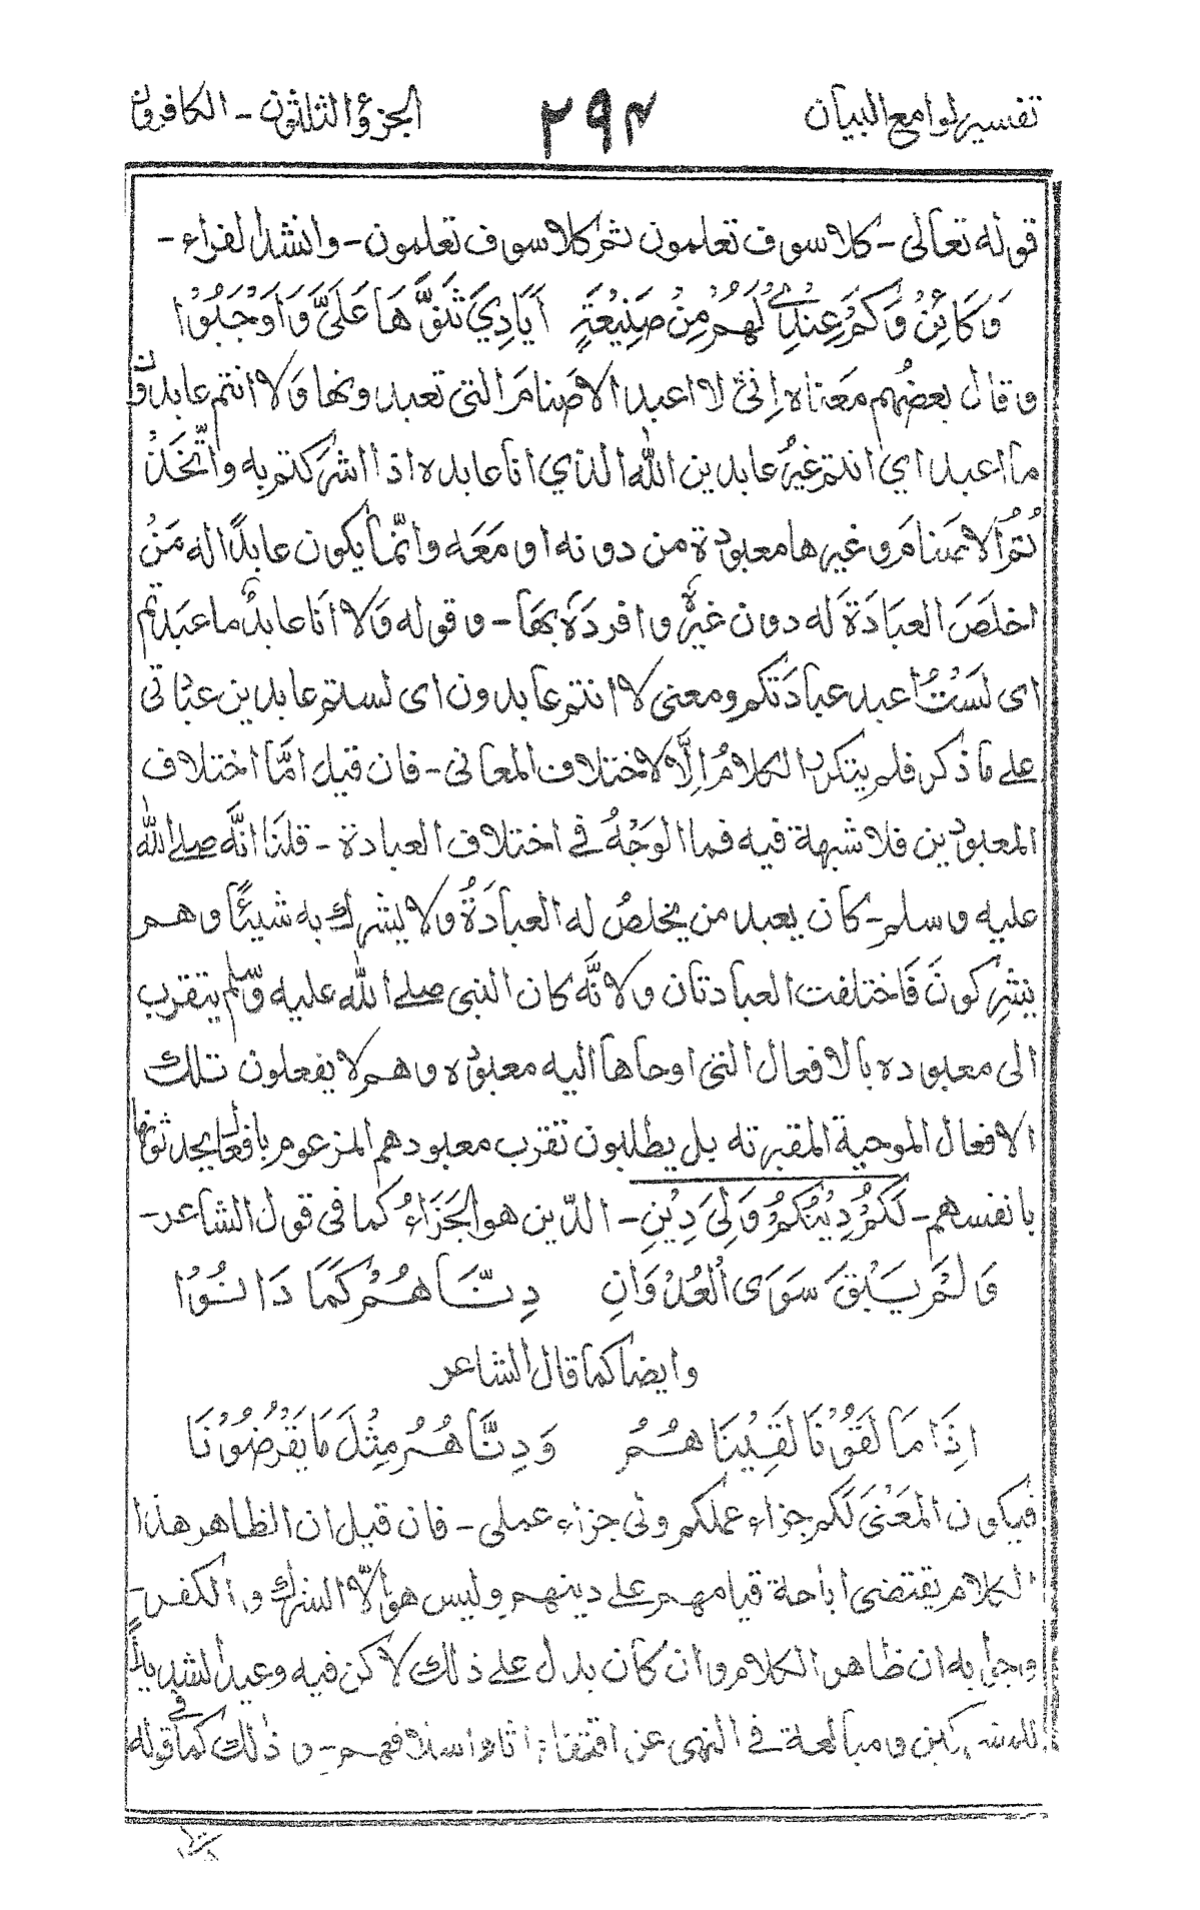 تفسير لوامع البيان ٢٩٤ الجزء الثلاثون - الكافرون
قوله تعالى - كلا سوف تعلمون ثم كلا سوف تعلمون - وانشد الفراء -
وَكَائِنْ وَكَمْ عِنْدِيْ لَهُمْ مِنْ صَنِيْعَةٍ أَيَادِيَ ثَنَوَّهَا عَلَيَّ وَاَوْجَبُوْا
وقال بعضهم مَعناه اِنّى لا اعبد الاصنامَ التى تعبدونها وَلا انتم عابدون
ما اعبد اي انتم غيرُ عابدين الله الذي انا عابده اذا اشركتم به واتّخَذْ
تُمُ الاصنام وغيرها معبودة من دونه او مَعَه وانّما يكون عابدًا له مَنْ
اخلَصَ العبادَةَ له دون غيره وافردَه بها - وقوله وَلا اَنا عابدٌ ما عبدتم
اى لَسْتُ اعبد عبادَتكم ومعنى لا انتم عابدون اى لستم عابدين عبادتى
على ما ذكر فلم يتكرر الكلامُ اِلَّا لاختلاف المعانى - فان قيل امَّا اختلاف
المعبودين فلا شبهة فيه فما الوَجْهُ فى اختلاف العبادة - قلنَا انَّه صلى الله
عليه وسلم - كان يعبد من يخلصُ له العبادَةُ ولا يشرك به شيئًا وهم
يشرِكونَ فَاختلفت العبادتان ولانَّه كان النبى صلى الله عليه وسّلم يتقرب
الى معبوده بالافعال التى اوحاها اليه معبوده وهم لا يفعلون تلك
الافعال الموحية المقربة له بل يطلبون تقرب معبودهم المزعوم بافعال يحدثونها
بانفسهم - لَكُمْ دِيْنُكُمْ وَلِىَ دِيْنِ - الدّين هو الجَزَاءُ كما فى قول الشاعر -
وَلَمْ يَبْقَ سَوَى الْعُدْوَانِ دِنَّاهُمْ كَمَا دَانُوْا
وايضا كما قال الشاعر
اِذَا مَا لَقُوْنَا لَقِيْنَاهُمْ وَدِنَّاهُمْ مِثْلَ مَا يَقْرِضُوْنَا
فيكون المَعْنىَ لَكم جزاء عملكم ولى جزاء عملى - فان قيل ان الظاهر هذا
الكلام يقتضى اباحة قيامهم على دينهم وليس هو الّا الشرك والكفر -
وجوابه ان ظاهر الكلام وان كان يدل على ذلك لاكن فيه وعيد لشديد
للمشركين ومبالغة فى النهى عن اقتفاء اثار اسلافهم - وذلك كما فى قوله